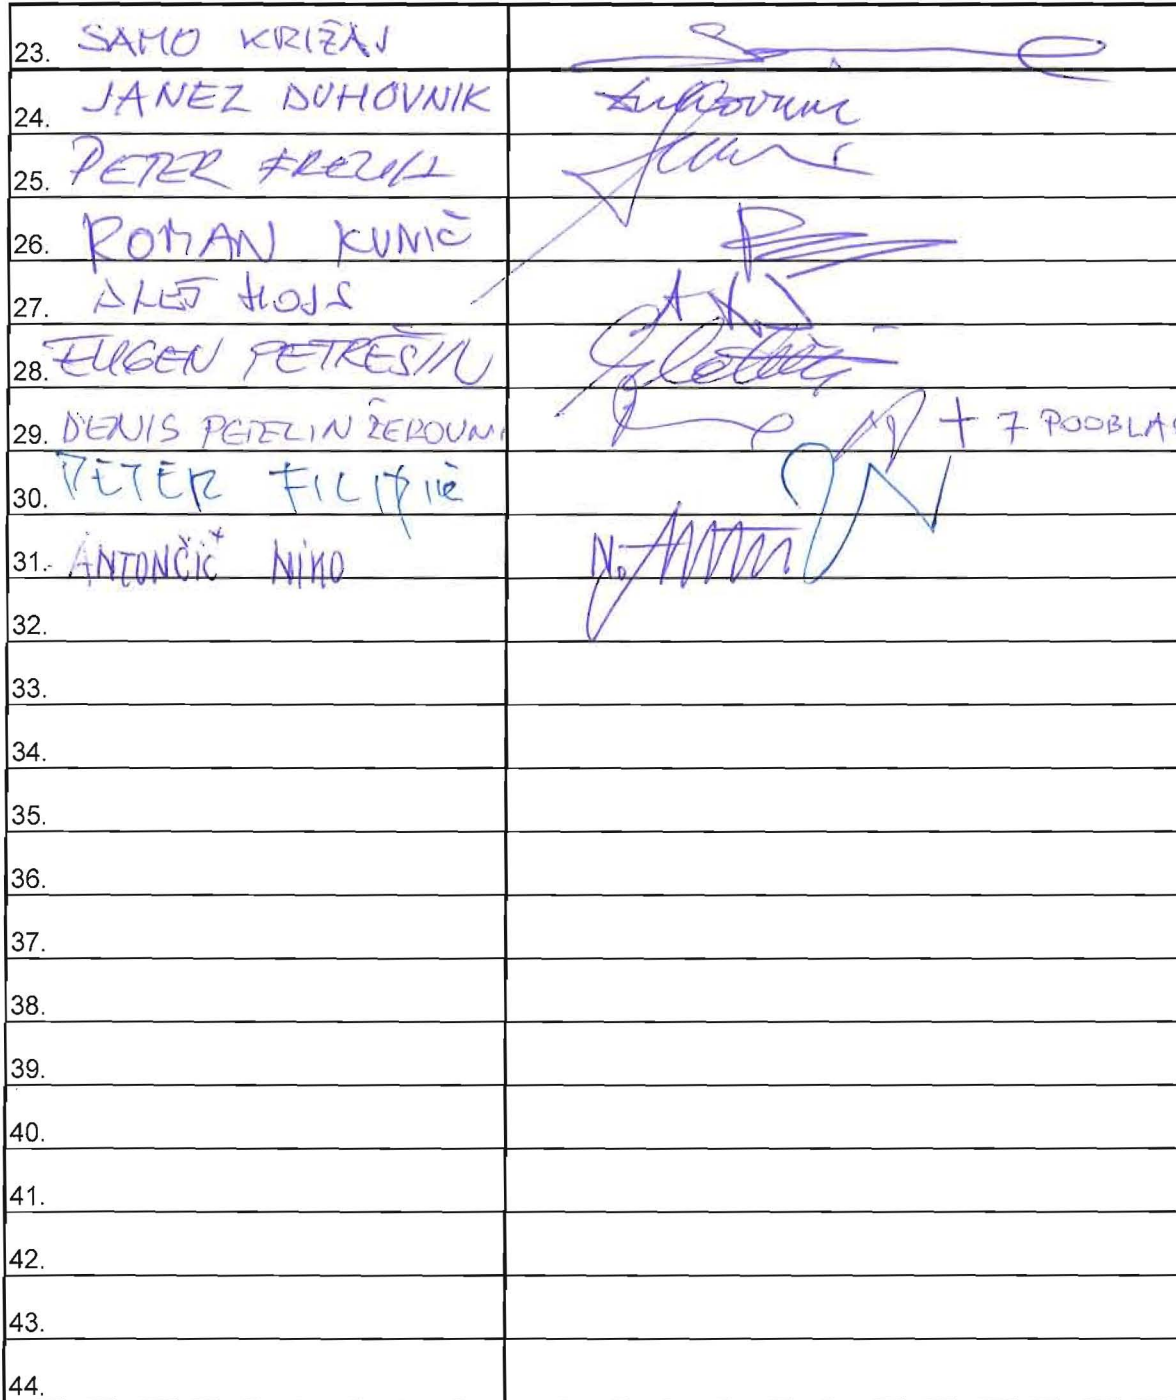 23. SAMO KRIŽAJ
24. JANEZ DUHOVNIK
25. PETER
26. ROMAN KUNIČ
27. ALEŠ HOJS
28. EUGEN PETREŠIN
29. DENIS PETELIN ŽEROVNI + 7 POOBLAS
30. PETER FILIPIČ
31. ANTONČIČ NIKO N.
32.
33.
34.
35.
36.
37.
38.
39.
40.
41.
42.
43.
44.